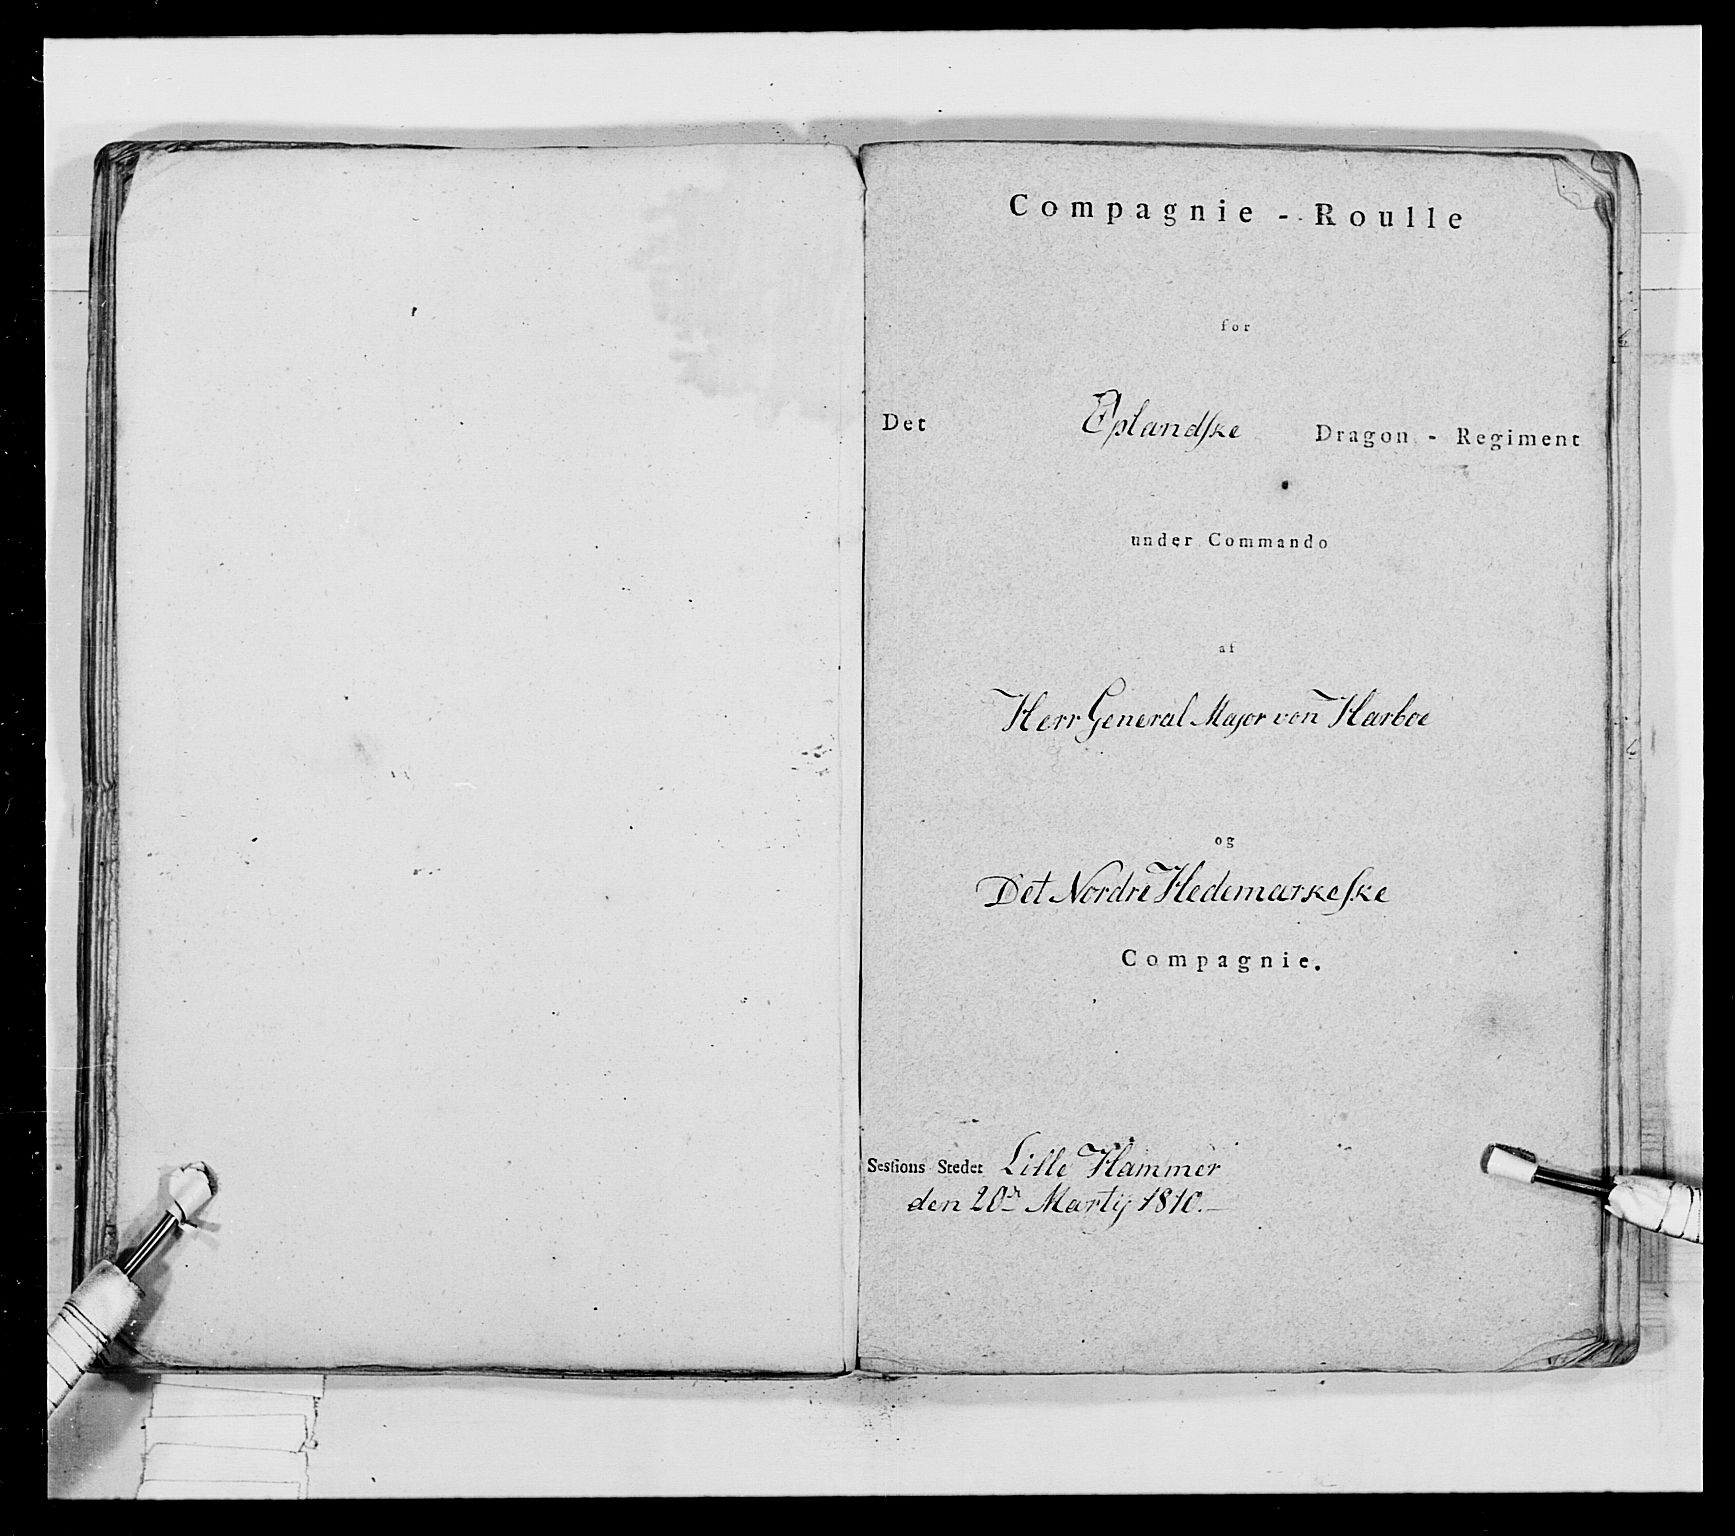 Compagnie - Roulle
for
Det Oplandske Dragon - Regiment
under Commando
af
Herr General Major von Harboe
og
Det Nordre Hedemarkeske
Compagnie.
Sessions Stedet Lille Hammer
den 20de Martij 1810.